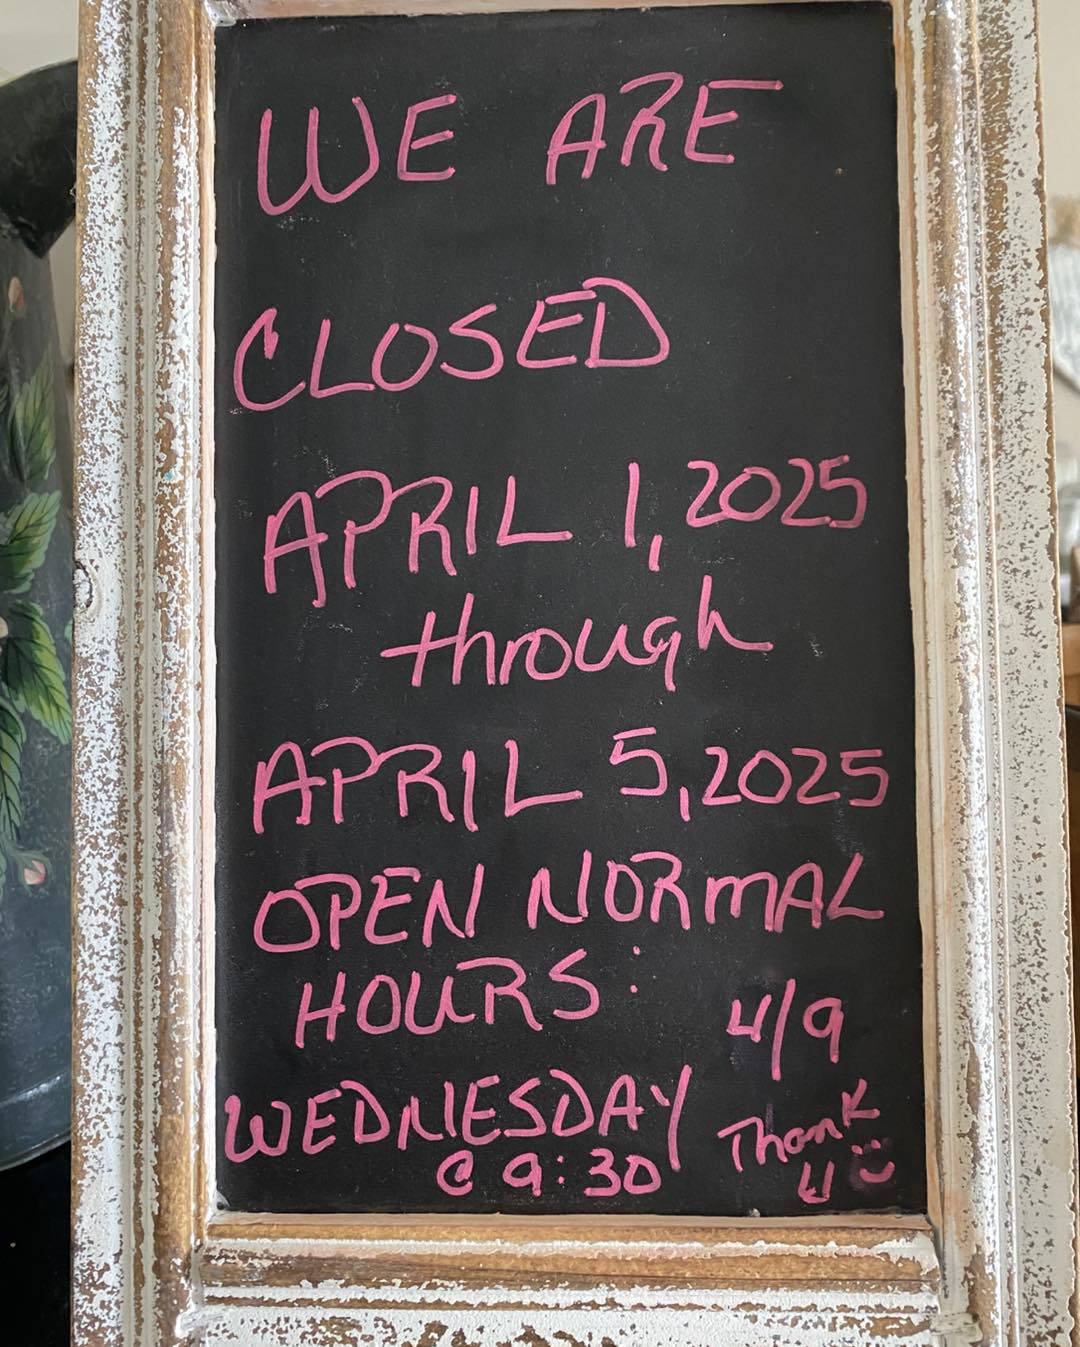 WE ARE
CLOSED
APRIL 1, 2025
through
APRIL 5, 2025
OPEN NORMAL
HOURS:
4/9
WEDNESDAY
@ 9:30
Thank
U